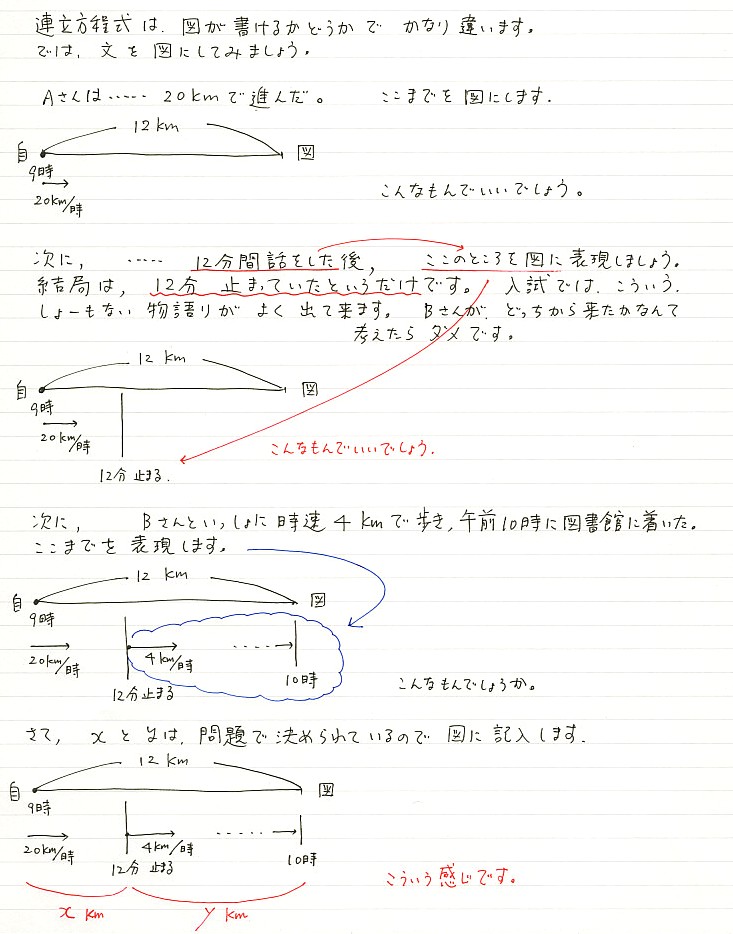 連立方程式は、図が書けるかどうかで かなり違います。
では、文を図にしてみましょう。
Aさんは…… 20kmで進んだ。 ここまでを図にします.
12 km
自 図
9時
20km/時
こんなもんでいいでしょう。
次に, …… 12分間話をした後, ここのところを図に表現しましょう。
結局は, 12分 止まっていたというだけです。 入試では、こういう、
しょーもない 物語りが よく出て来ます。 Bさんが、どっちから来たかなんて
考えたら ダメです。
12 km
自 図
9時
20km/時
こんなもんでいいでしょう.
12分 止まる.
次に, Bさんといっしょに 時速 4 kmで歩き, 午前10時に図書館に着いた。
ここまでを 表現します。
12 km
自 図
9時
20km/時 4km/時
12分止まる 10時
こんなもんでしょうか。
さて, xとyは、問題で決められているので 図に記入します.
12 km
自 図
9時
20km/時 4km/時
12分 止まる 10時
こういう感じです。
x km y km